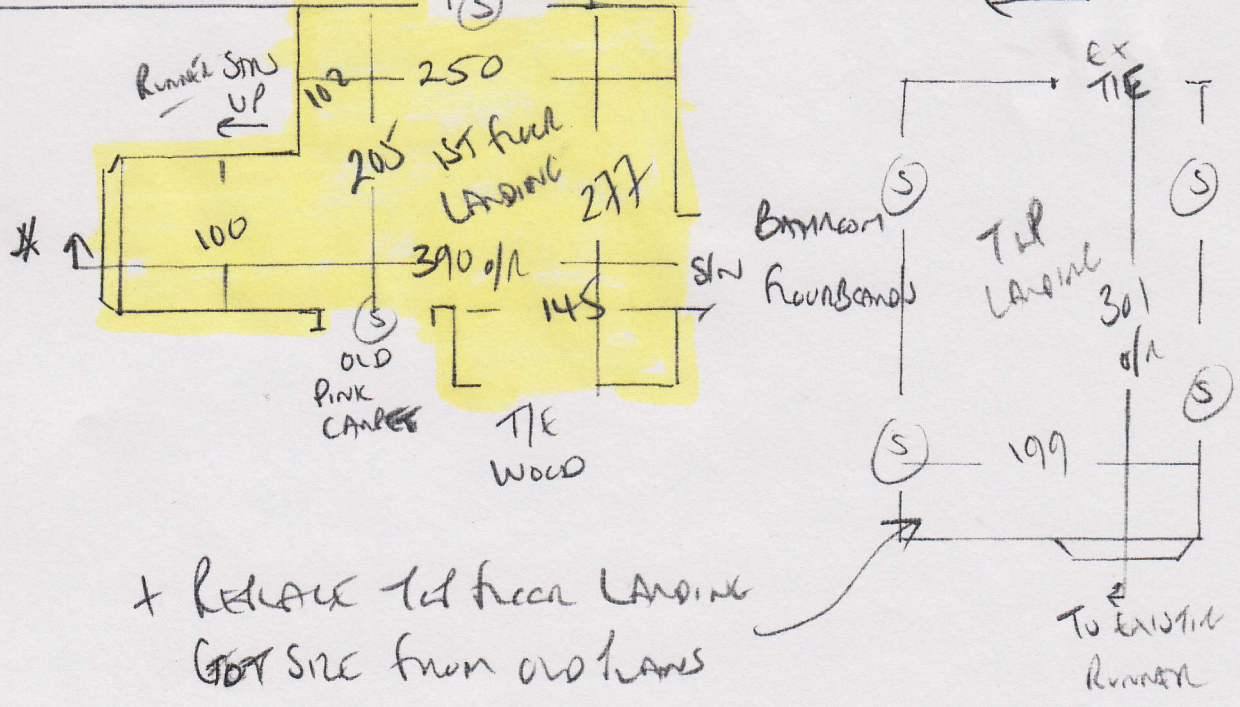 S
RUNNER S/N
UP
102
250
205
1ST FLOOR
LANDING
277
100
390 o/r
S/N
145
S
OLD
PINK
CARPET
T/E
WOOD
BATHROOM
FLOORBOARDS
EX
T/E
S
S
TOP
LANDING
301
o/r
S
S
199
TO EXISTING
RUNNER
+ REPLACE 1ST FLOOR LANDING
GOT SIZE FROM OLD PLANS